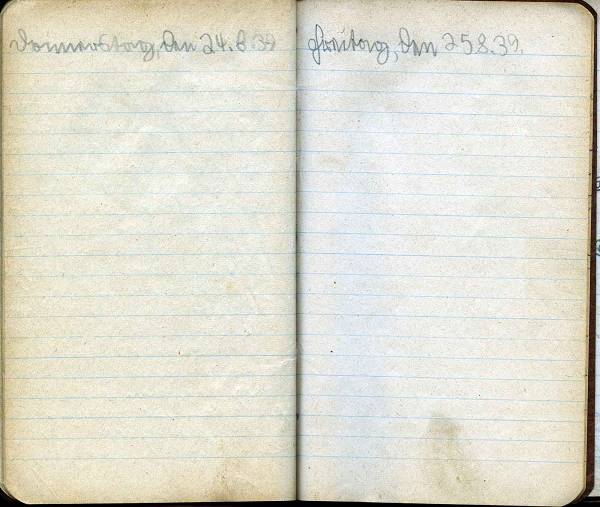 Donnerstag, den 24.8.39
Freitag, den 25 8.39.